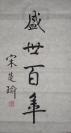 盛世百年
宋楚瑜